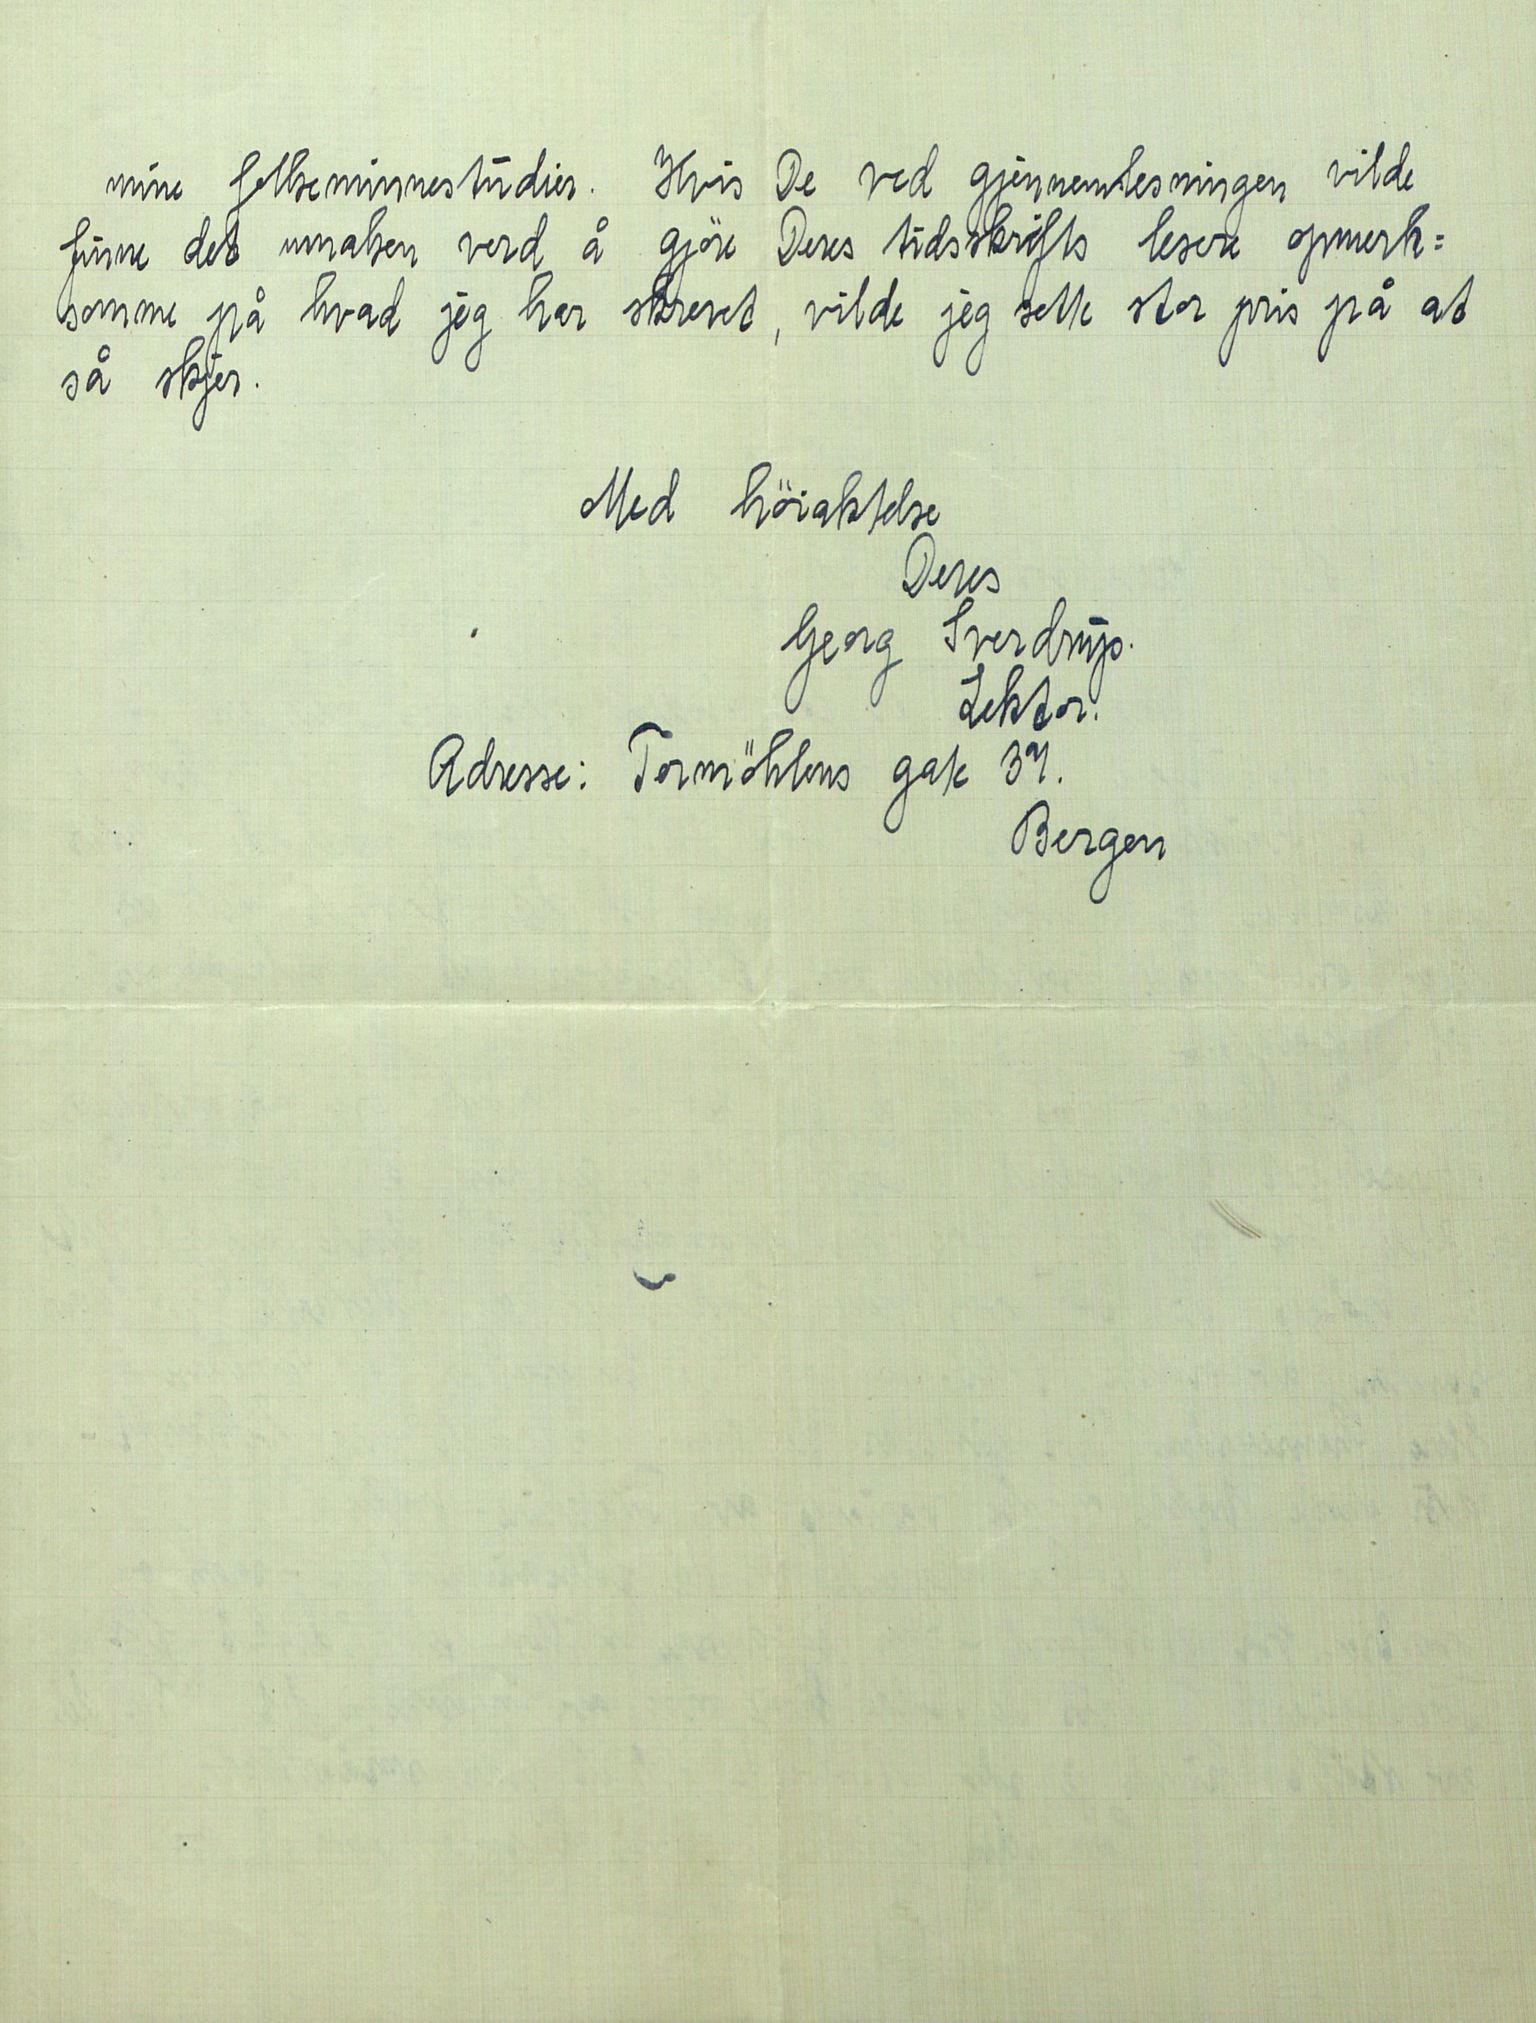 mine folkeminnestudier. Hvis De ved gjennemlesningen vilde
finne det umaken verd å gjöre Deres tidsskrifts lesere opmerk=
somme på hvad jeg har skrevet, vilde jeg sette stor pris på at
så skjer.
Med höiaktelse
Deres
Georg Sverdrup.
Lektor.
Adresse: Tormöhlens gate
Bergen